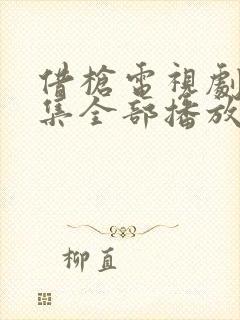 借槍電視劇
集全部播放
柳直